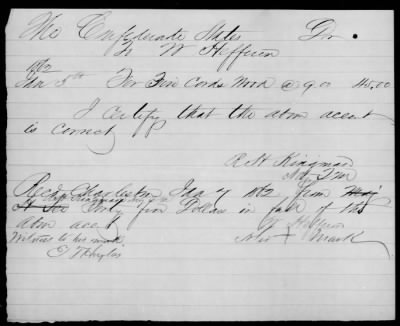 The Confederate States Dr.
To W Hefferon
1862
Jan 5th For Five Cords Wood @ 9.00 45.00
I certify that the above acct
is correct
R H Kingman
Recd Charleston Jan 7 1862 from
Forty five Dollars in full of the
above acct
W Hefferon
Witness to his mark his X mark